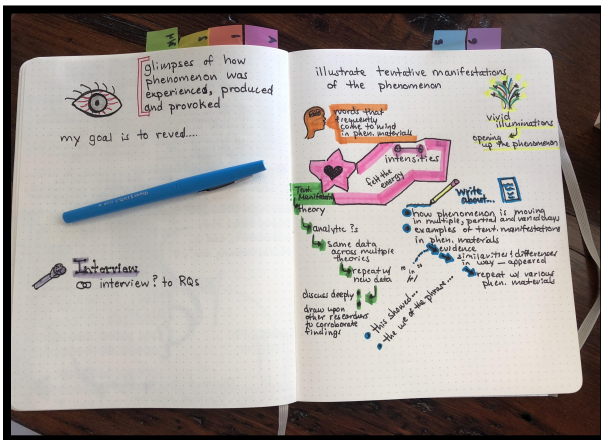 glimpses of how
phenomenon was
experienced, produced
and provoked
my goal is to reveal....
Interview
interview ? to RQs
illustrate tentative manifestations
of the phenomenon
words that
frequently
come to mind
in phen. materials
vivid
illuminations
opening
up the phenomenon
intensities
felt the
energy
Tent.
Manifestations
theory
analytic ?s
same data
across multiple
theories
repeat w/
new data
discuss deeply
draw upon
other researchers
to corroborate
findings
Write
about...
how phenomenon is moving
in multiple, partial and varied ways
examples of tent. manifestations
in phen. materials
evidence
similarities & differences
in way — appeared
repeat w/ various
phen. materials
this showed...
the use of the phrase...